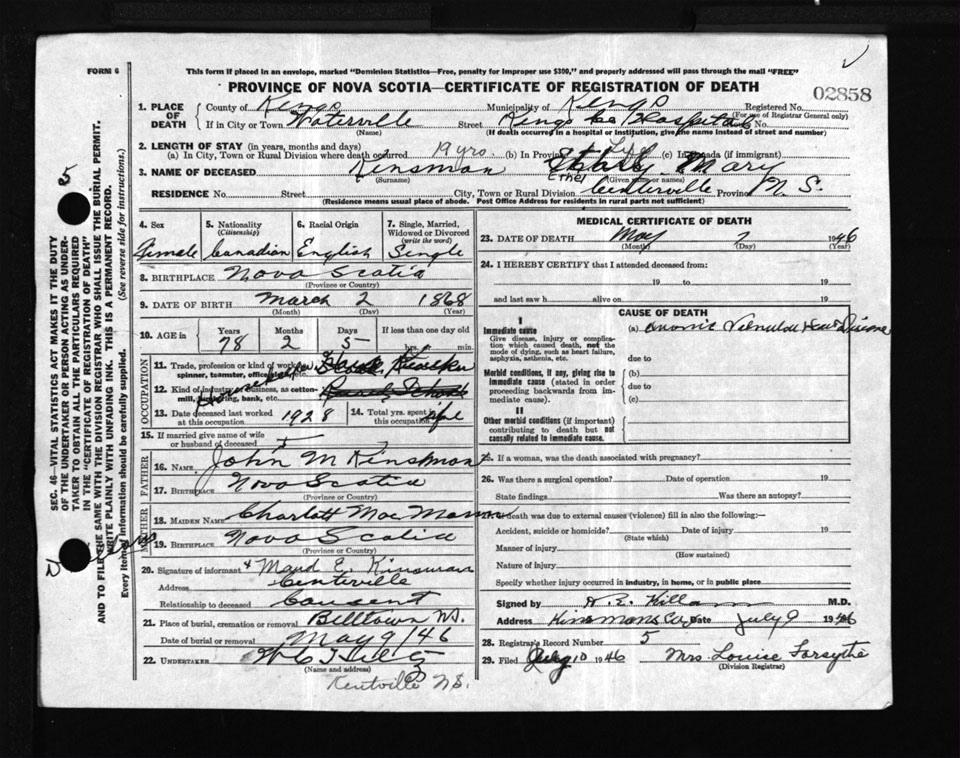 FORM 6
This form if placed in an envelope, marked "Dominion Statistics—Free, penalty for improper use $300," and properly addressed will pass through the mail "FREE"
PROVINCE OF NOVA SCOTIA—CERTIFICATE OF REGISTRATION OF DEATH
02858
1. PLACE OF DEATH County of Kings Municipality of Kings Registered No.
(For use of Registrar General only)
If in City or Town Waterville Street Kings Co Hospital
(Name) (If death occurred in a hospital or institution, give the name instead of street and number)
2. LENGTH OF STAY (in years, months and days)
(a) In City, Town or Rural Division where death occurred 19 yrs (b) In Province Life (c) In Canada (if immigrant)
3. NAME OF DECEASED Kinsman Ethel Mary
(Surname) (Given name or names)
RESIDENCE No. Street City, Town or Rural Division Centerville Province N S.
(Residence means usual place of abode. Post Office Address for residents in rural parts not sufficient)
SEC. 46—VITAL STATISTICS ACT MAKES IT THE DUTY
OF THE UNDERTAKER OR PERSON ACTING AS UNDER-
TAKER TO OBTAIN ALL THE PARTICULARS REQUIRED
IN THE "CERTIFICATE OF REGISTRATION OF DEATH"
AND TO FILE THE SAME WITH THE DIVISION REGISTRAR WHO SHALL ISSUE THE BURIAL PERMIT.
WRITE PLAINLY WITH UNFADING INK. THIS IS A PERMANENT RECORD.
Every item of information should be carefully supplied. (See reverse side for instructions.)
4. Sex 5. Nationality 6. Racial Origin 7. Single, Married,
(Citizenship) Widowed or Divorced
(write the word)
Female Canadian English Single
8. BIRTHPLACE Nova Scotia
(Province or Country)
9. DATE OF BIRTH March 2 1868
(Month) (Day) (Year)
10. AGE in Years Months Days If less than one day old
78 2 5 hrs. min.
OCCUPATION
11. Trade, profession or kind of work as
spinner, teamster, office clerk, etc.
12. Kind of industry or business, as cotton-
mill, lumbering, bank, etc.
13. Date deceased last worked 1928 14. Total yrs. spent life
at this occupation in this occupation
15. If married give name of wife
or husband of deceased
FATHER
16. NAME John M Kinsman
17. BIRTHPLACE Nova Scotia
(Province or Country)
MOTHER
18. MAIDEN NAME Charlott Mac
19. BIRTHPLACE Nova Scotia
(Province or Country)
20. Signature of informant Maud E. Kinsman
Address Centerville
Relationship to deceased
21. Place of burial, cremation or removal Billtown NS.
Date of burial or removal May 9/46
22. UNDERTAKER W C Hiltz
(Name and address)
Kentville N S.
MEDICAL CERTIFICATE OF DEATH
23. DATE OF DEATH May 7 1946
(Month) (Day) (Year)
24. I HEREBY CERTIFY that I attended deceased from:
19 to 19
and last saw h alive on 19
CAUSE OF DEATH
I
Immediate cause (a) Disease
Give disease, injury or complica-
tion which caused death, not the
mode of dying, such as heart failure,
asphyxia, asthenia, etc. due to
Morbid conditions, if any, giving rise to (b)
immediate cause (stated in order due to
proceeding backwards from im-
mediate cause). (c)
II
Other morbid conditions (if important)
contributing to death but not
causally related to immediate cause.
25. If a woman, was the death associated with pregnancy?
26. Was there a surgical operation? Date of operation 19
State findings Was there an autopsy?
death was due to external causes (violence) fill in also the following:—
Accident, suicide or homicide? Date of injury 19
(State which)
Manner of injury
(How sustained)
Nature of injury
Specify whether injury occurred in industry, in home, or in public place
Signed by M.D.
Address Date July 9 1946
28. Registrar's Record Number 5
29. Filed July 10 1946 Mrs. Louise Forsythe
(Division Registrar)